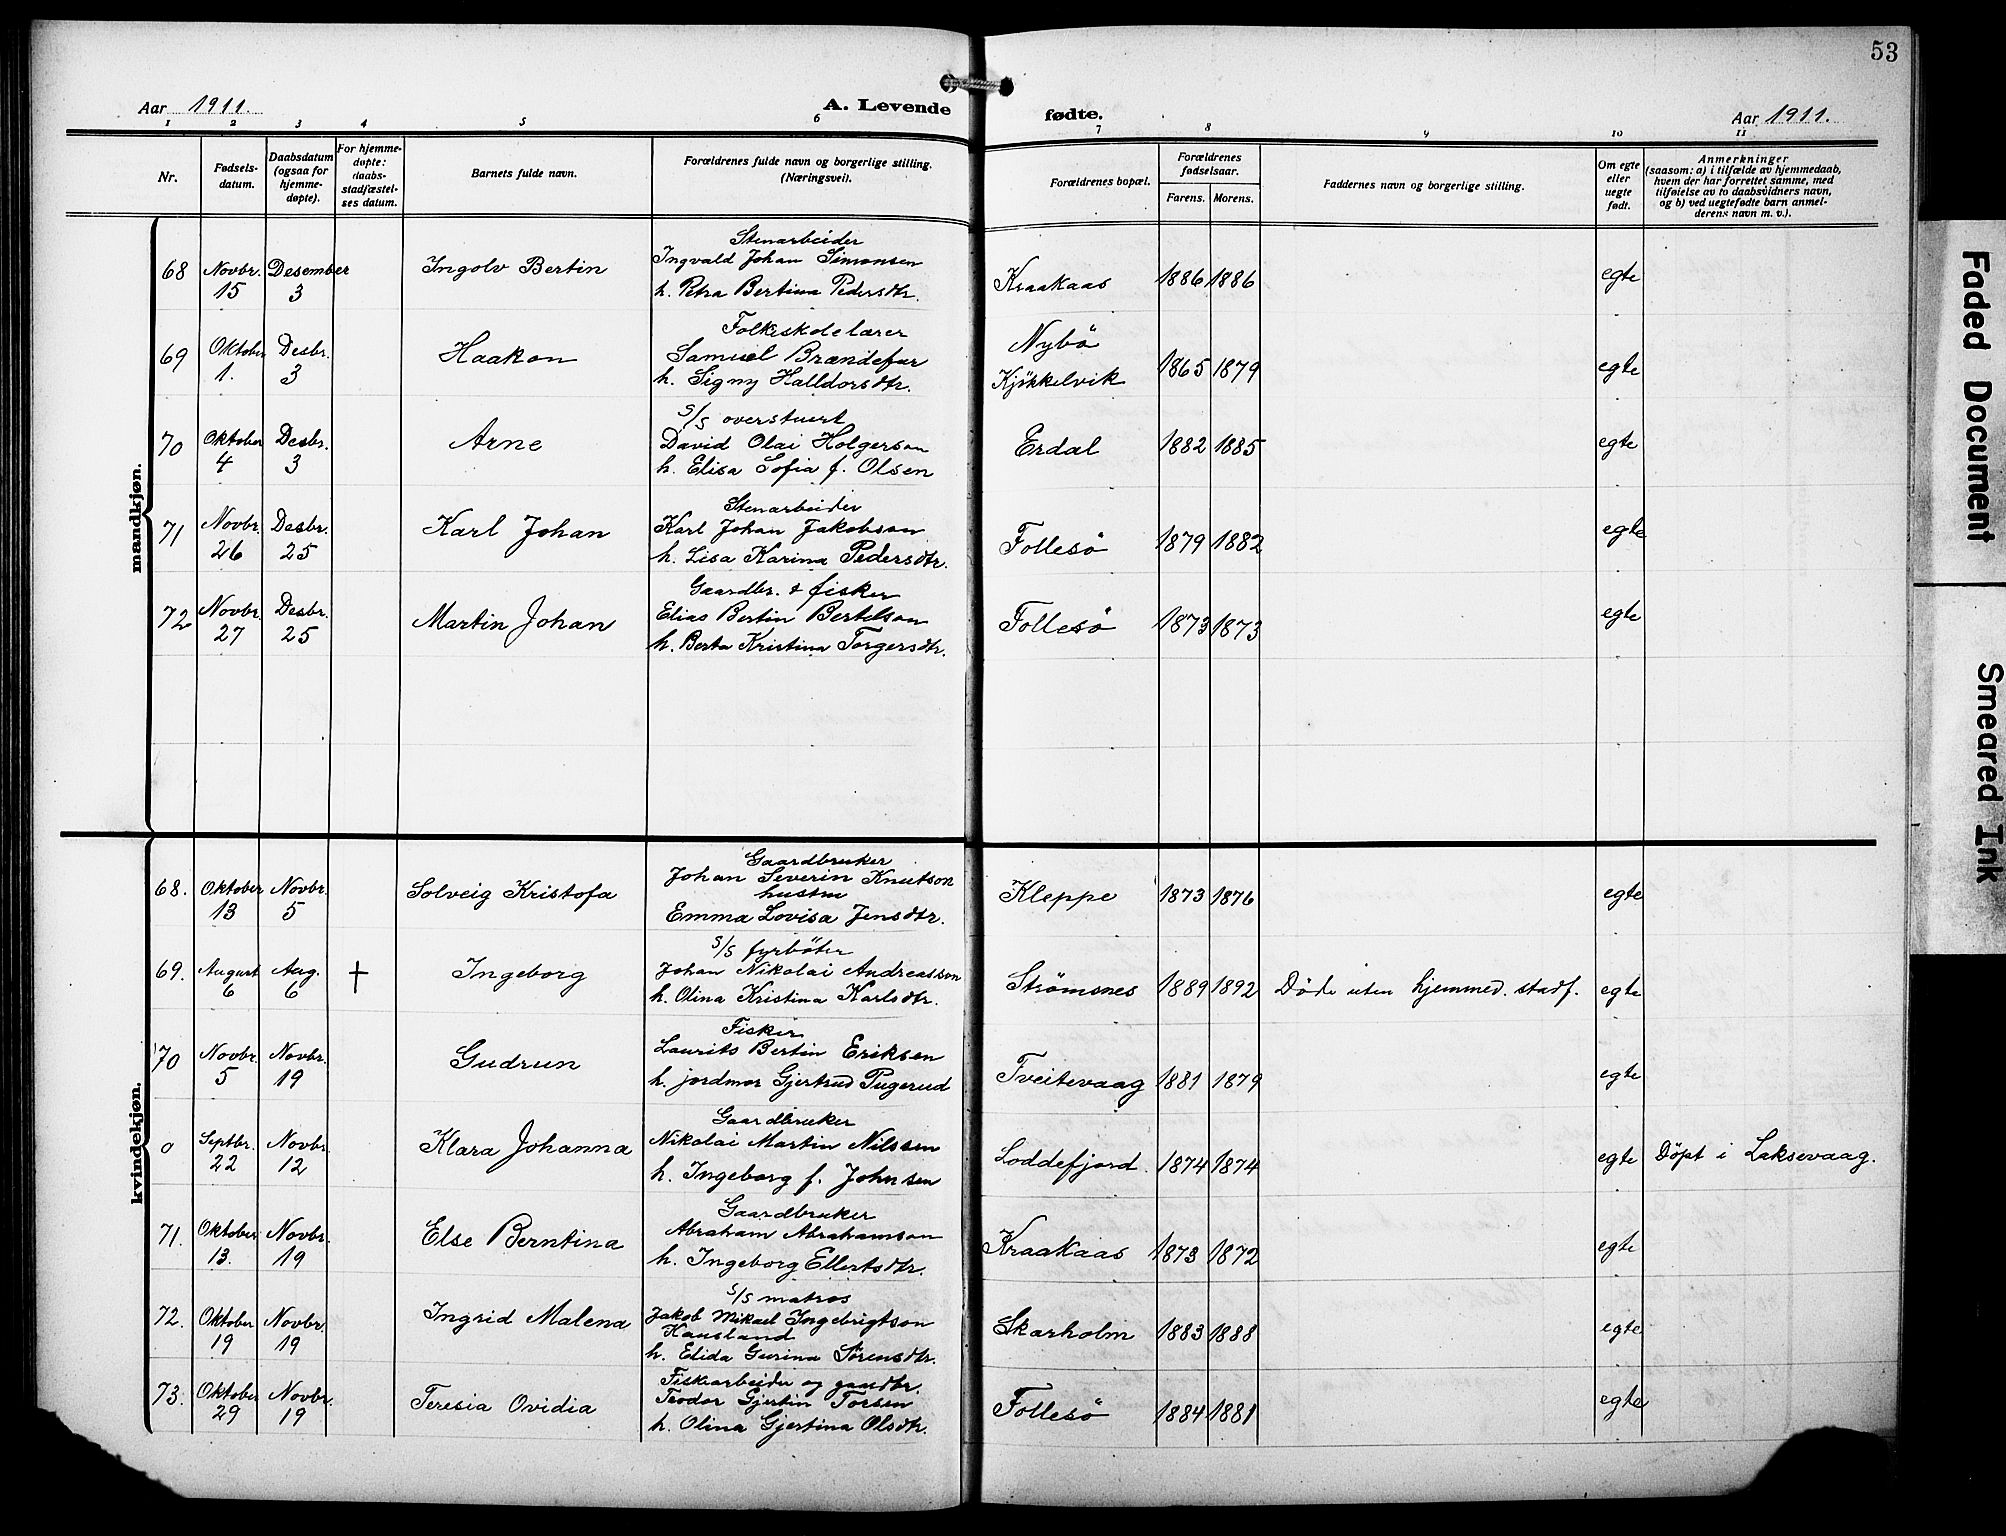 53
Aar 1911.
A. Levende
fødte.
Aar 1911.
1 2 3 4 5 6 7 8 9 10 11
Nr.
Fødsels-
datum.
Daabsdatum
(ogsaa for
hjemme-
døpte).
For hjemme-
døpte:
daabs-
stadfæstel-
ses datum.
Barnets fulde navn.
Forældrenes fulde navn og borgerlige stilling.
(Næringsvei).
Forældrenes bopæl.
Forældrenes
fødselsaar.
Farens. Morens.
Faddernes navn og borgerlige stilling.
Om egte
eller
uegte
født.
Anmerkninger
(saasom: a) i tilfælde av hjemmedaab,
hvem der har forrettet samme, med
tilføielse av to daabsvidners navn,
og b) ved uegtefødte barn anmel-
derens navn m. v.).
mandkjøn.
Stenarbeider
68 Novbr. Desember Ingolv Bertin Ingvald Johan Simonsen Kraakaas 1886 1886 egte
15 3 h. Petra Bertina Pedersdtr.
Folkeskolelærer
69 Oktober Desbr. Haakon Samuel Brændefur Nybö 1865 1879 egte
1. 3 h. Signy Halldorsdtr. Kjøkkelvik
S/S overstuert
70 Oktober Desbr. Arne David Olai Holgerson Erdal 1882 1885 egte
4 3 h. Elisa Sofia f. Olsen
Stenarbeider
71 Novbr. Desbr. Karl Johan Karl Johan Jakobson Follesö 1879 1882 egte
26 25 h. Lisa Karina Pedersdtr.
Gaardbr. & fisker
72 Novbr. Desbr. Martin Johan Elias Bertin Bertelson Follesö 1873 1873 egte
27 25 h. Berta Kristina Torgersdtr.
kvindekjøn.
Gaardbruker
68. Oktober Novbr. Solveig Kristofa Johan Severin Knutson Kleppe 1873 1876 egte
hustru
13 5 Emma Lovisa Jensdtr.
S/S fyrböter
69. August Aug. † Ingeborg Johan Nikolai Andreasson Strømsnes 1889 1892 Døde uten hjemmed. stadf. egte
6 6 h. Olina Kristina Karlsdtr.
Fisker
70 Novbr. Novbr. Gudrun Laurits Bertin Eriksen Tveitevaag 1881 1879 egte
5 19 h. jordmor Gjertrud Pugerud
Gaardbruker
0 Septbr. Novbr. Klara Johanna Nikolai Martin Nilssen Loddefjord. 1874 1874 egte Døpt i Laksevaag.
22 12 h. Ingeborg f. Johnsen
Gaardbruker
71. Oktober Novbr. Else Berntina Abraham Abrahamson Kraakaas 1873 1872 egte
13. 19 h. Ingeborg Ellertsdtr.
S/S matros
72. Oktober Novbr. Ingrid Malena Jakob Mikael Ingebrigtson Skarholm 1883 1888 egte
Hausland
19 19 h. Elida Gurina Sørensdtr.
Fiskearbeider og gaardbr.
73. Oktober Novbr. Teresia Ovidia Teodor Gjertin Torsen Follesö 1884 1881 egte
29 19 h. Olina Gjertina Olsdtr.
Faded Document
Smeared Ink